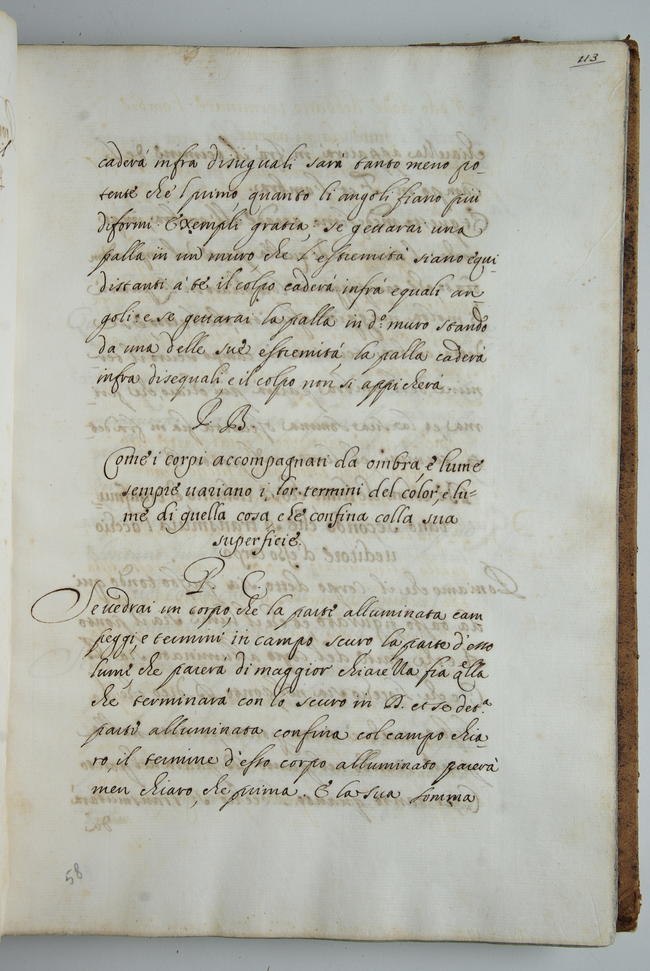 113
caderà infra disuguali sarà tanto meno po-
tente che 'l primo quanto li angoli fiano più
diformi. Exempli gratia, se gettarai una
palla in un muro, che l'estremità siano equi-
distanti à te il colpo caderà infrà equali an-
goli: e se gettarai la palla in d.º muro stando
da una delle sue estremità, la palla caderà
infra disequali, e il colpo non si appicherà.
P. B.
Come i corpi accompagnati da ombra, e lume
sempre uariano i lor termini del color, e lu-
me di quella cosa che confina colla sua
superficie.
P. C.
Se uedrai un corpo, che la parte alluminata cam
peggi, e termini in campo scuro, la parte d'esso
lume, che parerà di maggior chiarezza fia q.lla
che terminarà con lo scuro in D. et se det.ª
parte alluminata confina col campo chia-
ro, il termine d'esso corpo alluminato parerà
men chiaro, che prima. E la sua somma
58